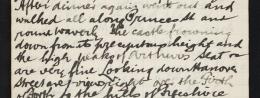 After dinner again went out and
walked all along Princes St and
round Waverly the castle frowning
down from its precipitous height and
the high peak of Arthurs seat
are very fine Looking down Hanover
Street one views right the Firth
of Forth to the hills of